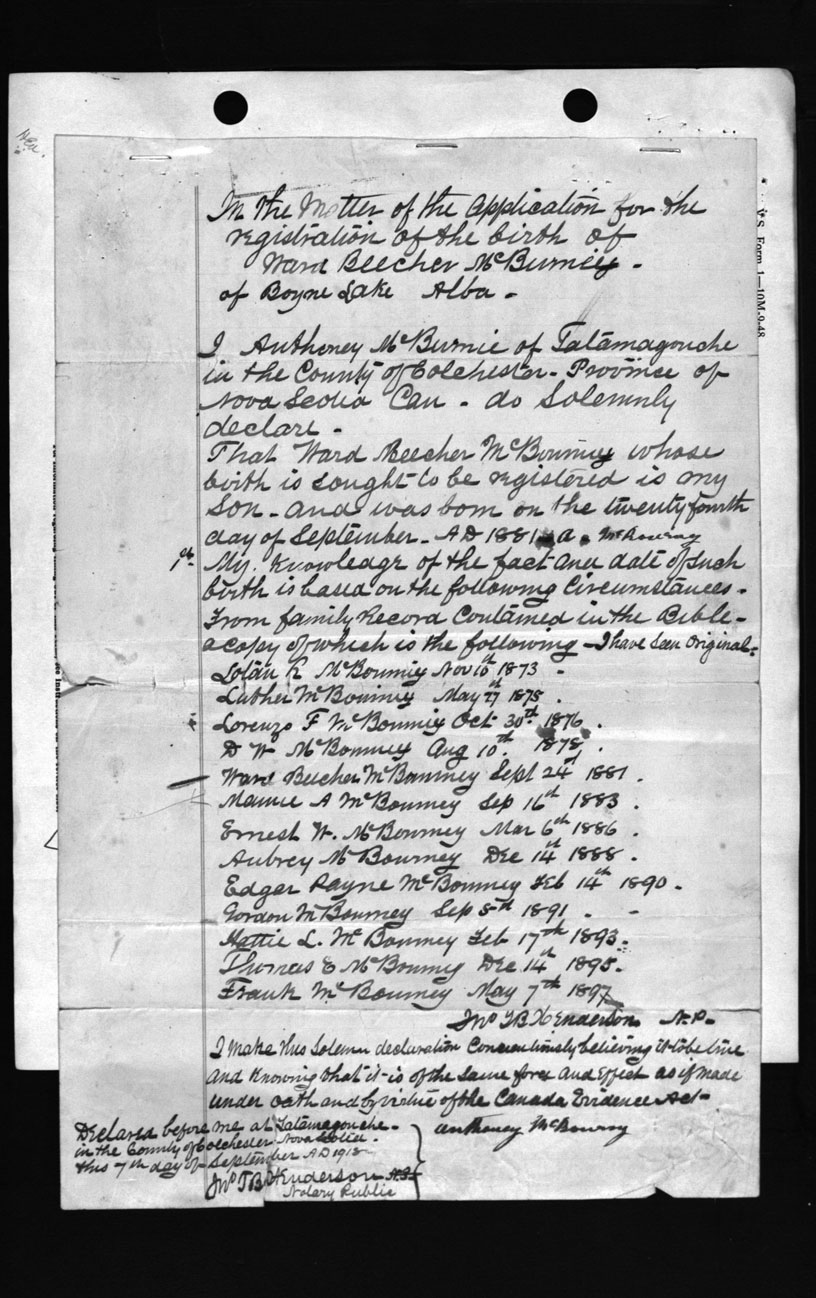 In the Matter of the application for the
registration of the birth of
Ward Beecher McBurney -
of Boyne Lake Alba -
I Anthoney McBurnie of Tatamagouche
in the County of Colchester - Province of
Nova Scotia Can - do Solemnly
declare -
That Ward Beecher McBourney whose
birth is sought to be registered is my
Son - and was born on the twenty fourth
day of September - AD 1881 - a. McBourny
My. Knowledge of the fact and date of such
birth is based on the following Circumstances -
From family Record Contained in the Bible -
a copy of which is the following - I have seen Original -
R McBourney Nov 10th 1873 -
Luther McBourney May 27 1875 .
Lorenzo F McBourney Oct 30th 1876 .
D W McBourney Aug 10th 1878 .
Ward Beecher McBourney Sept 24th 1881 .
A McBourney Sep 16th 1883 .
Ernest W. McBourney Mar 6th 1886 .
Aubrey McBourney Dec 14th 1888 .
Edgar Payne McBourney Feb 14th 1890 .
Gordon McBourney Sep 5th 1891 . -
Hattie L. McBourney Feb 17th 1893 .
Thomas E McBourney Dec 14th 1895 .
Frank McBourney May 7th 1897
Jno T B Henderson N.P.
I make this Solemn declaration Conscientiously believing it to be true
and Knowing that it is of the same force and Effect as if made
under oath and by virtue of the Canada Evidence Act -
Declared before me at Tatamagouche -
in the County of Colchester Nova Scotia -
this 7th day of September AD 1918
Jno T B Henderson N.P.
Notary Public
anthoney McBourny
V.S. Form 1—10M-9-48